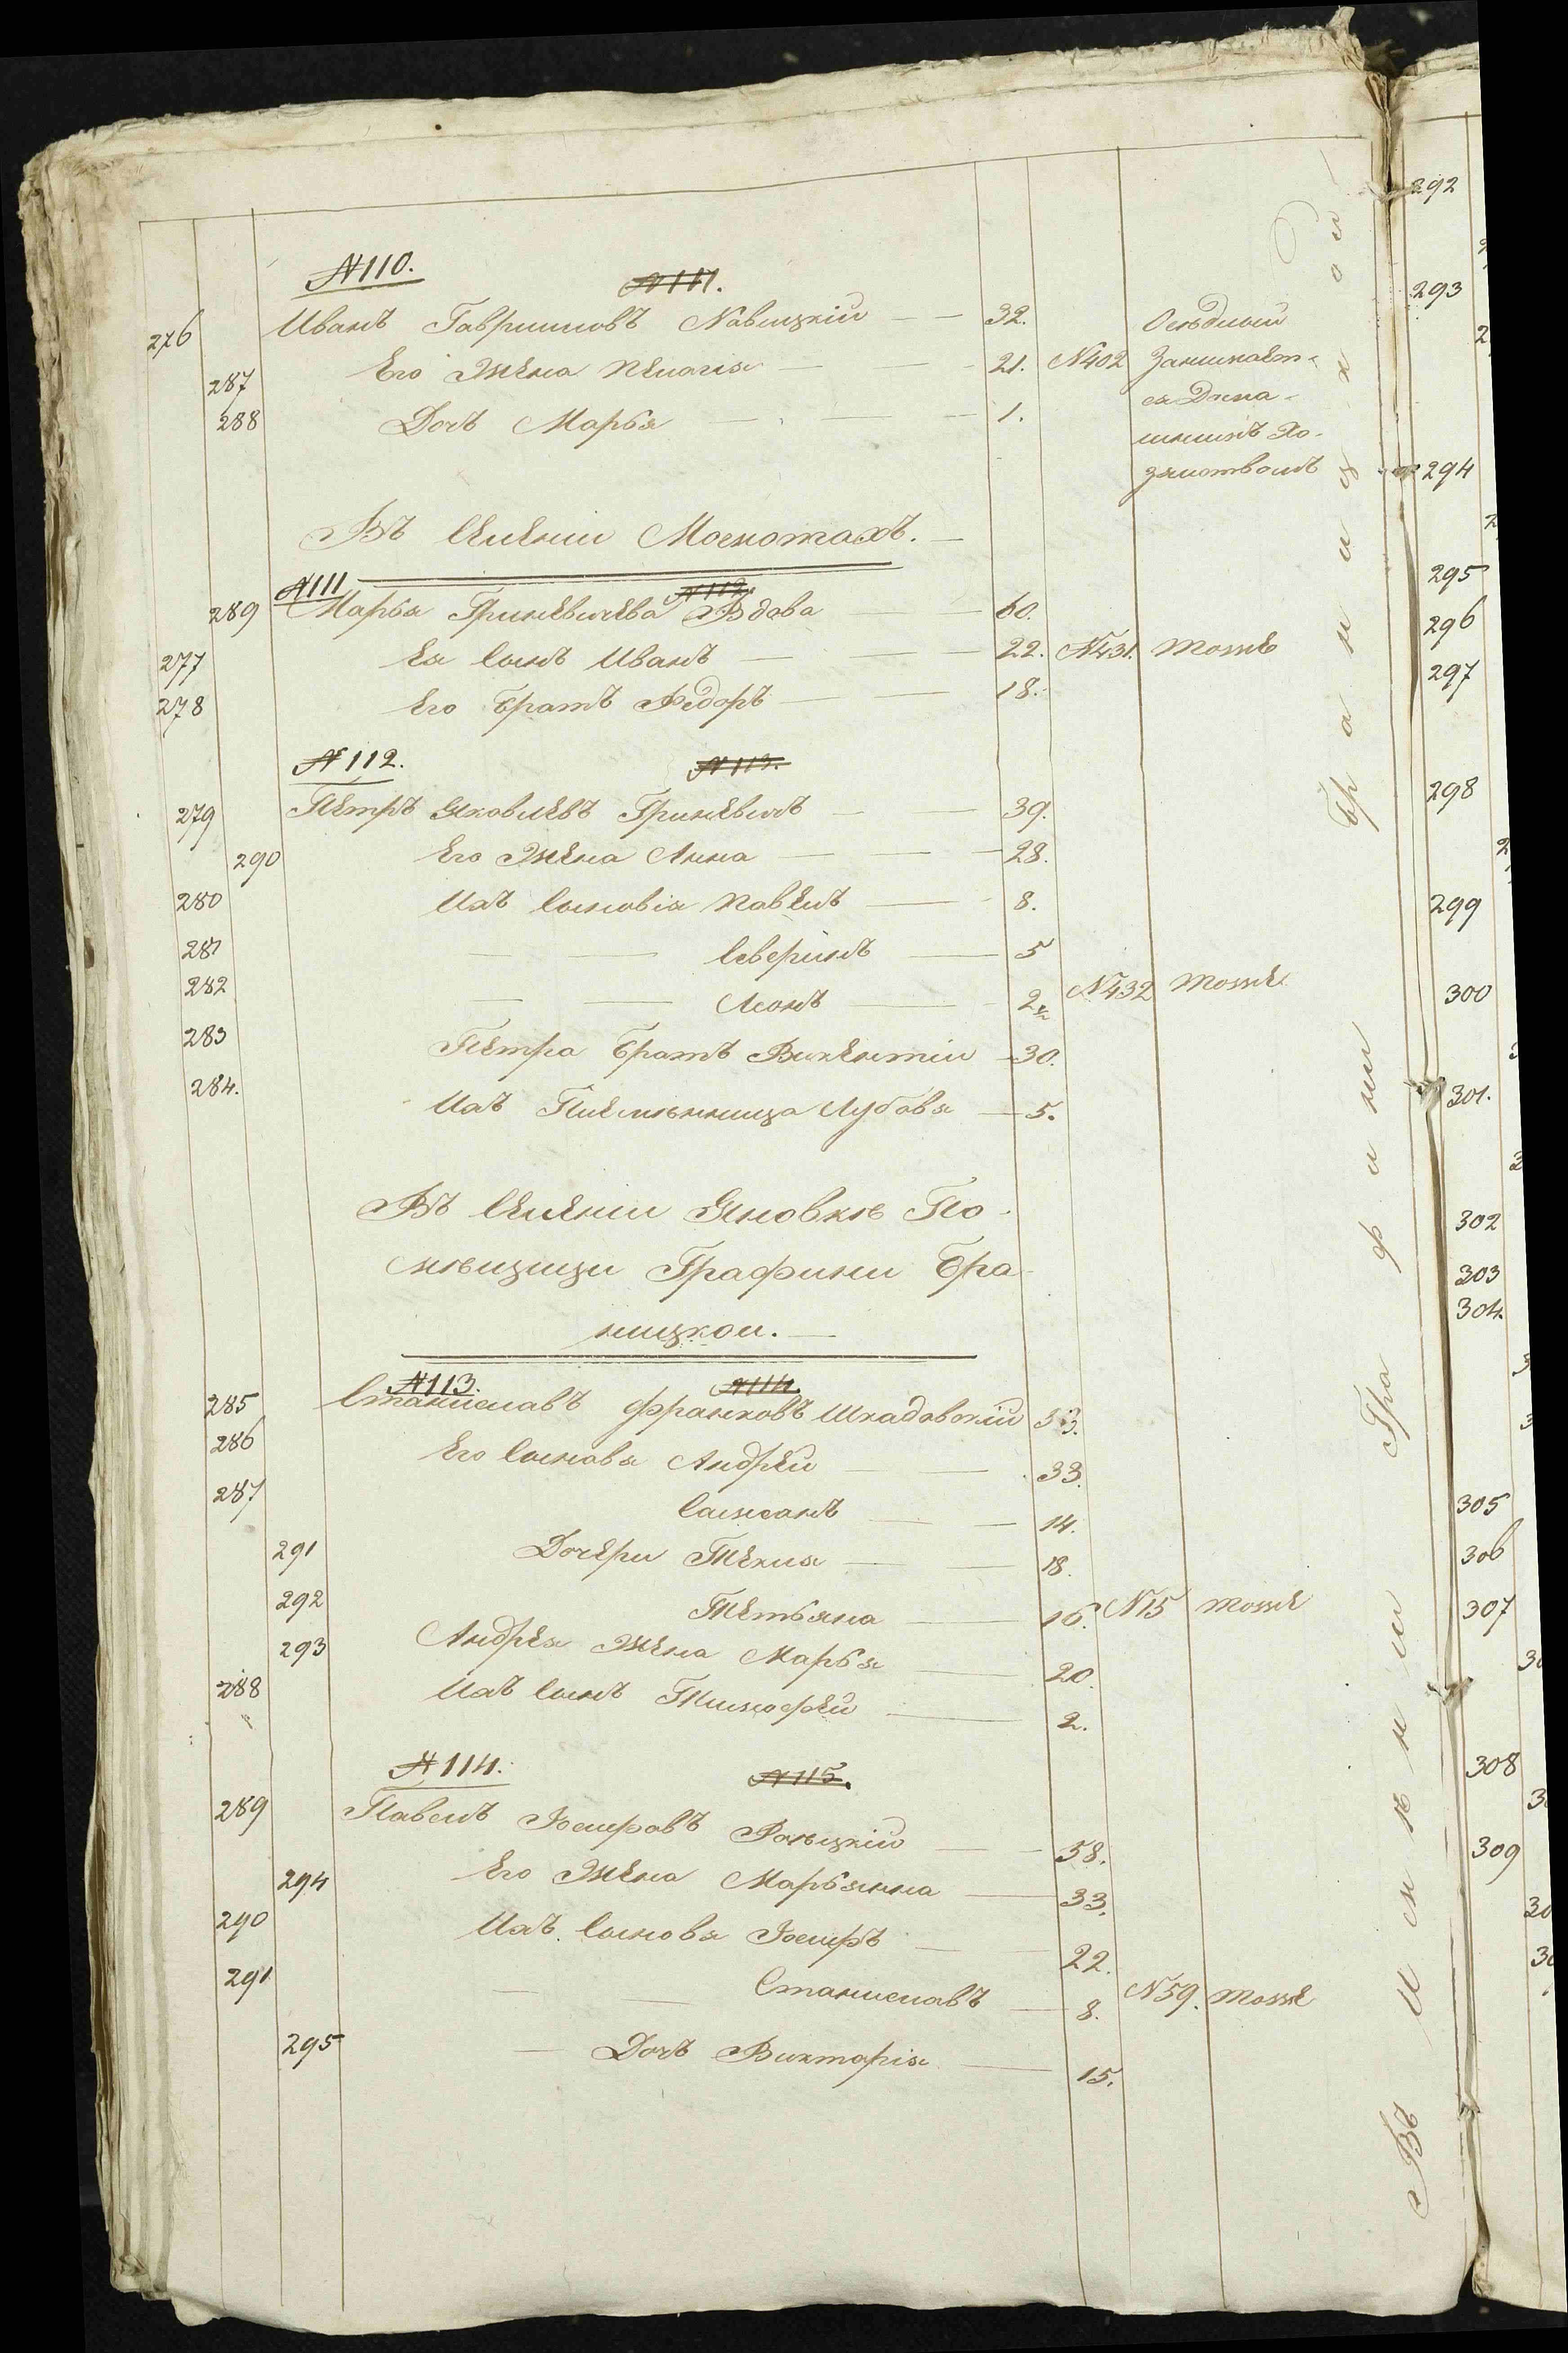 № 110. № 111.
276 Иванъ Гавриловъ Навицкій 32. Осѣдлый
287 Его Жена Пелагія 21. №402 Занимает-
288 Дочъ Марья 1. ся Дома-
шнимъ Хо-
зяйствомъ
Въ Селеніи Москотахъ.
№ 111 № 112
289 Марья Гриневичева Вдова 60.
277 Ея Сынъ Иванъ 22. №431. тоже
278 Его Братъ Федоръ 18.
№ 112. № 113.
279 Петръ Яковлевъ Гриневичъ 39.
290 Его Жена Анна 28.
280 Ихъ Сыновія Павелъ 8.
281 Северинъ 5
282 Леонъ 2 №432 тоже
283 Петра Братъ Викентій 30.
284. Ихъ Племѣнница Лубовя 5.
Въ Селеніи Яновкѣ По-
мѣщици Графини Бра-
ницкой.
№ 113. № 114.
285 Станиславъ Франковъ Шкадовскій 53.
286 Его Сыновя Андрей 33.
287 14.
291 Дочери Текля 18.
292 Тетьяна 16. №15 тоже
293 Андрея Жена Марья 20.
288 Ихъ Сынъ Тимофей 2.
№ 114. № 115.
289 Павелъ Іосифовъ 58.
294 Его Жена Марьянна 33.
290 Ихъ Сыновя Іосифъ 22.
291 Станиславъ 8. №59. тоже
295 Дочъ Викторія 15.
Въ Имѣніи Графини Браницкой
292
293
294
295
296
297
298
299
300
301.
302
303
304.
305
306
307
308
309